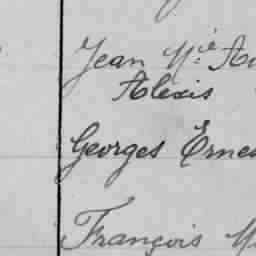 Jean M.ie Au
Alexis
Georges Ernes
François M